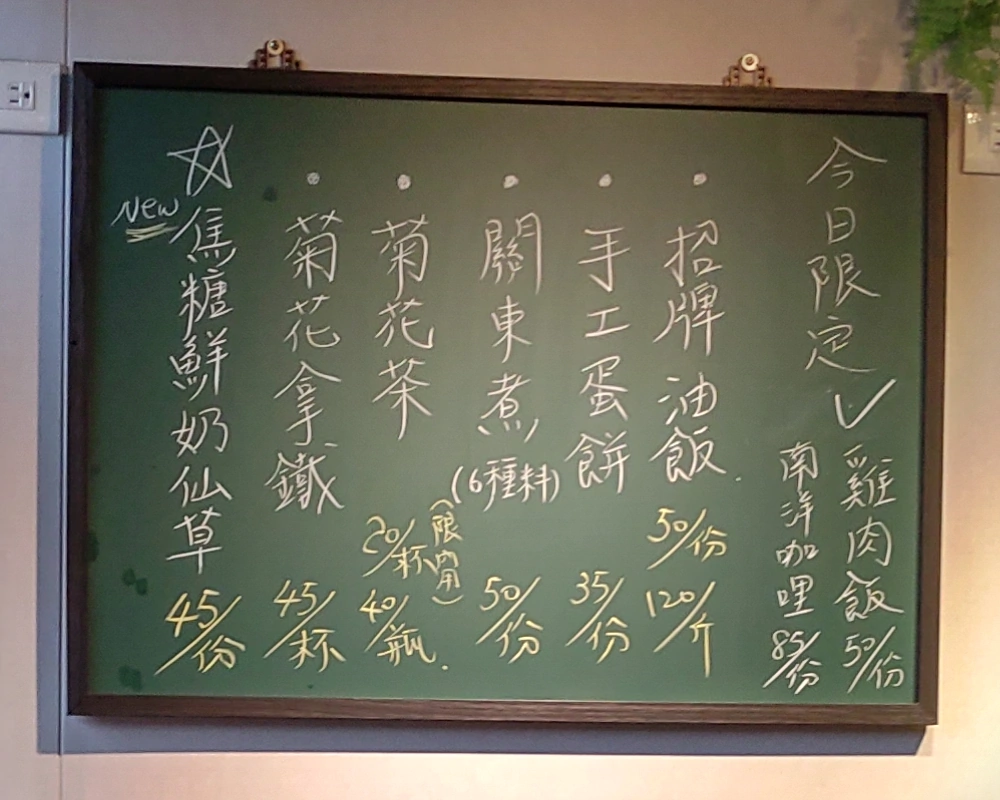 今日限定✓
雞肉飯 50/份
南洋咖哩 85/份
• 招牌油飯. 50/份
120/斤
• 手工蛋餅 35/份
• 關東煮(6種料) 50/份
• 菊花茶 20/杯(限內用)
40/瓶.
• 菊花拿鐵 45/杯
☆ 焦糖鮮奶仙草 45/份
New